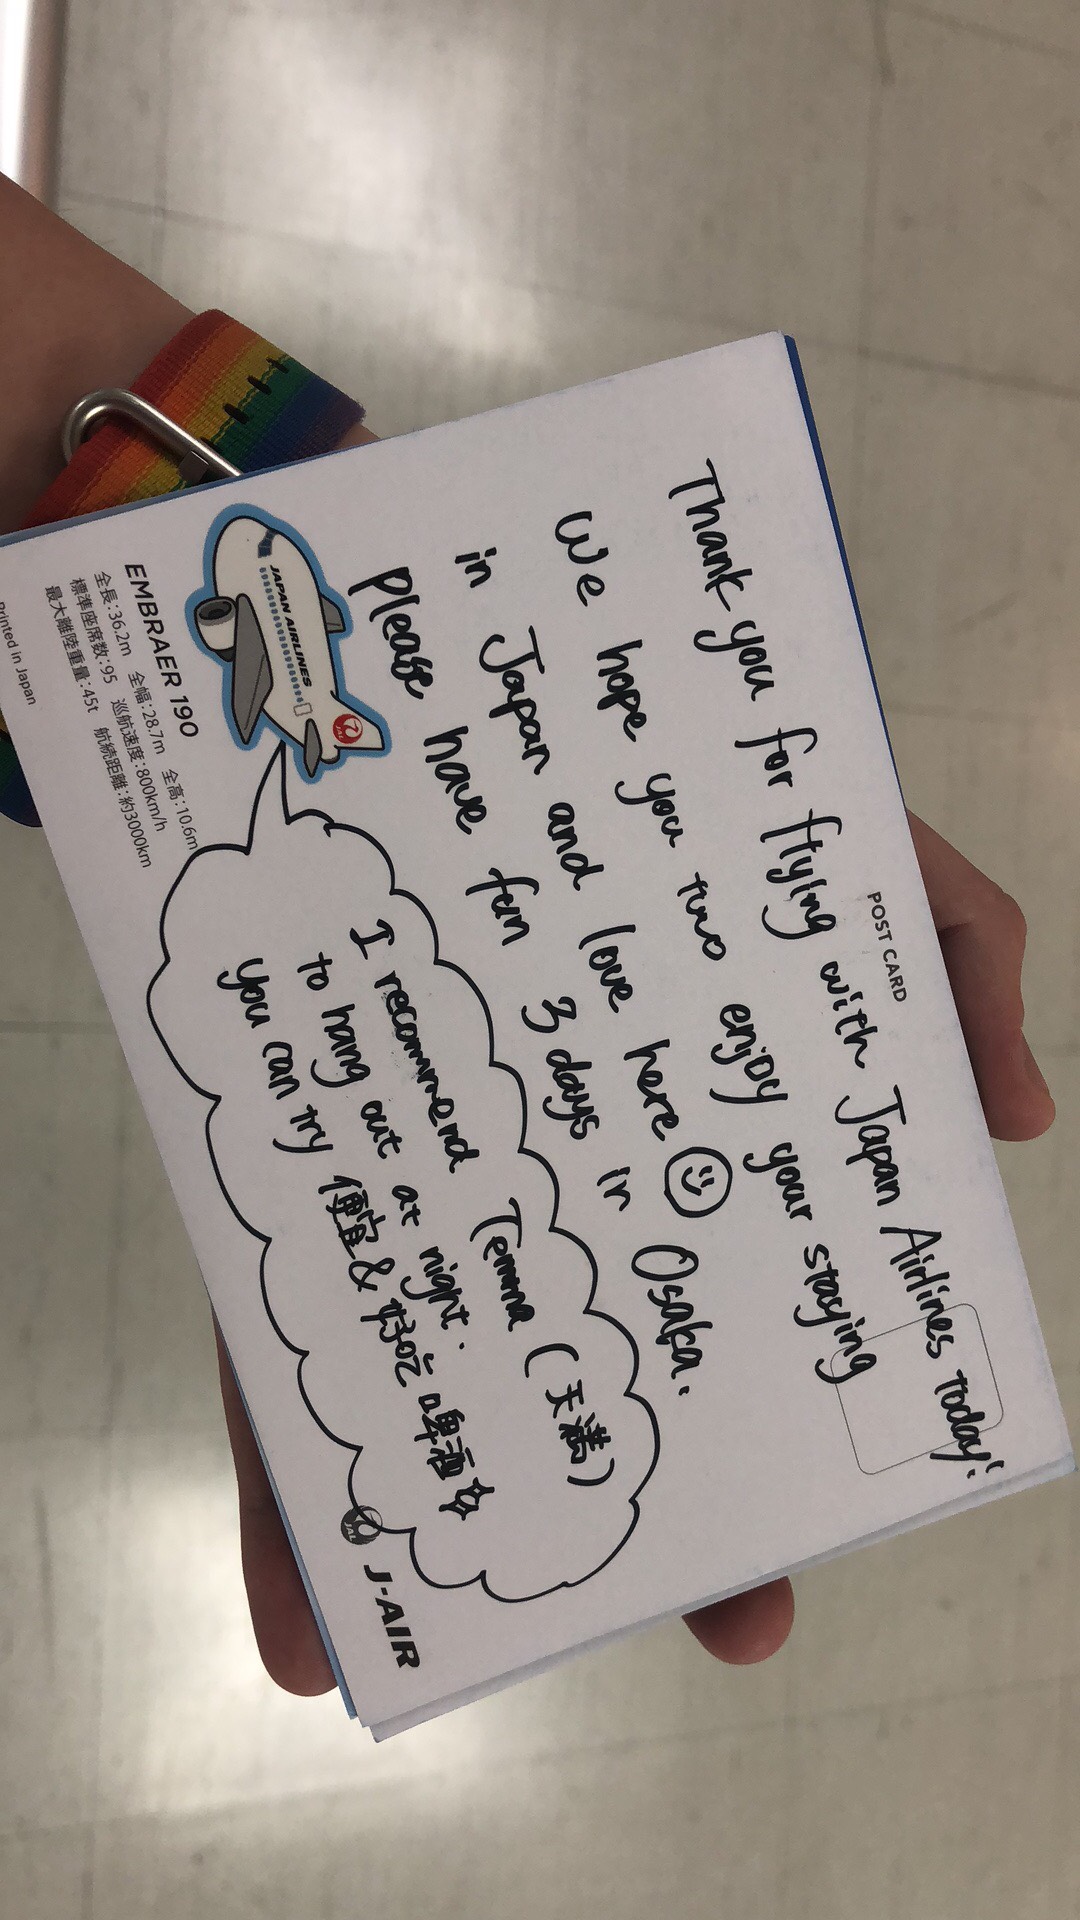 POST CARD
Thank you for flying with Japan Airlines today!
We hope you two enjoy your staying
in Japan and love here
Please have fun 3 days in Osaka.
I recommend Temma (天満)
to hang out at night.
You can try 便宜 & 好吃 啤酒
JAPAN AIRLINES
JAL
EMBRAER 190
全長:36.2m 全幅:28.7m 全高:10.6m
標準座席数:95 巡航速度:800km/h
最大離陸重量:45t 航続距離:約3000km
Printed in Japan
JAL
J-AIR